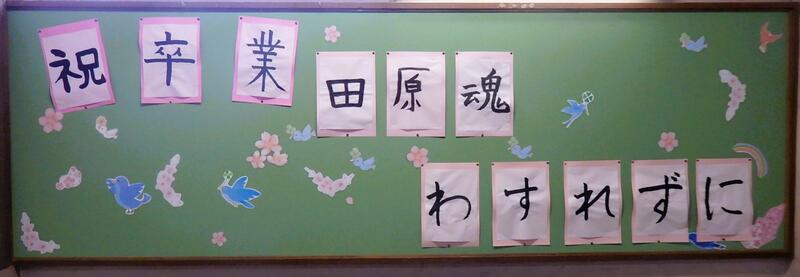 祝卒業
田原魂
わすれずに